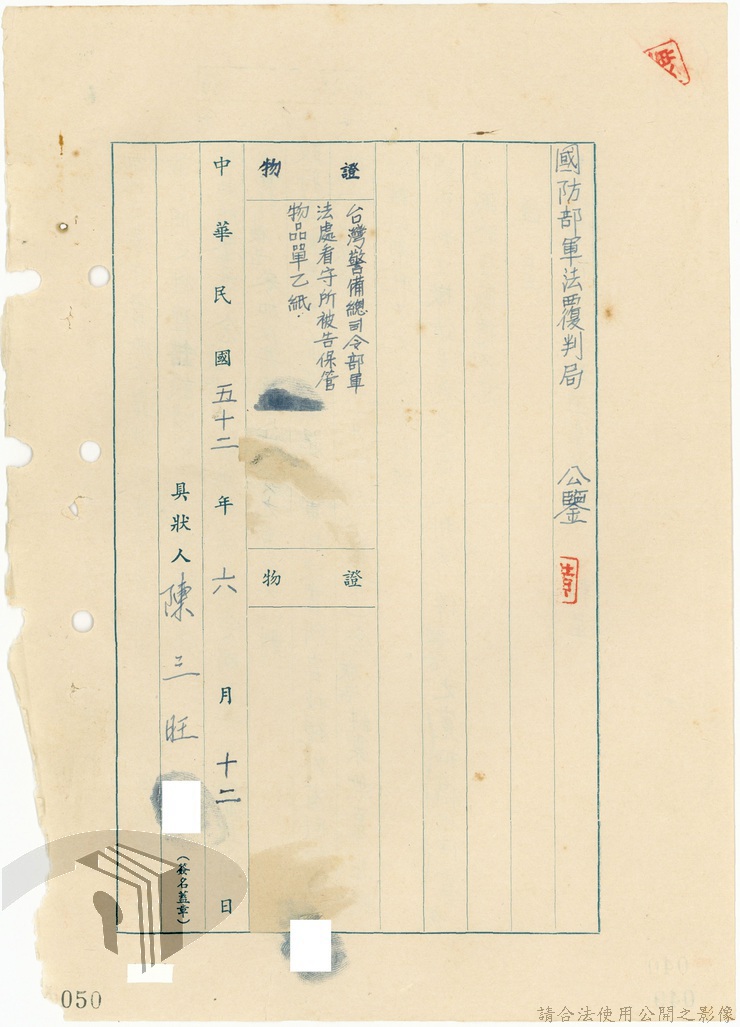 國防部軍法覆判局 公鑒
證物
台灣警備總司令部軍
法處看守所被告保管
物品單乙紙.
證物
中華民國五十二年六月十二日
具狀人 陳三旺 (簽名蓋章)
050
請合法使用公開之影像